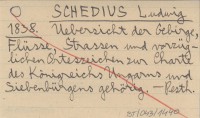 SCHEDIUS Ludwig
1838. Uebersicht der Gebirge,
Flüsse, Strassen und vorzüg-
lichen Ortszeichen zur Charte
des Königreichs Ungarns und
Siebenbürgens gehörig. — Pesth.